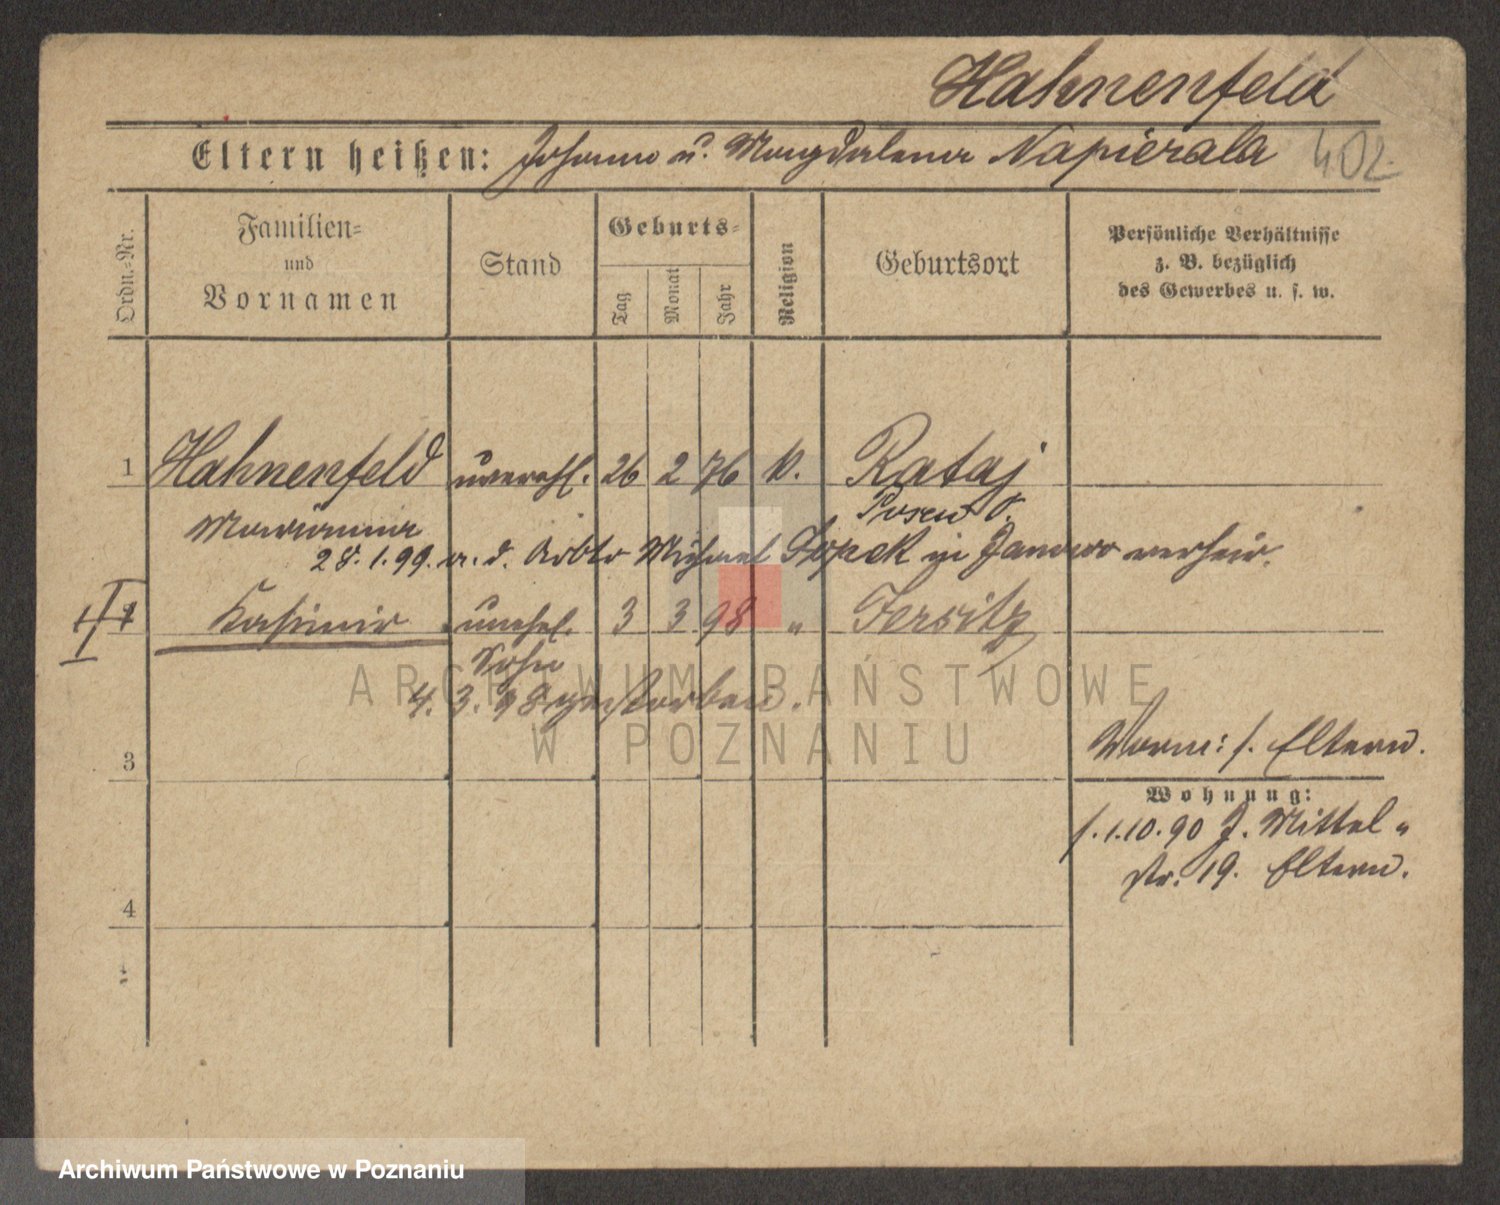 Hahnenfeld
Eltern heißen: Johann u. Magdalena Napierala 402
Ordn.-Nr.
Familien- und Vornamen
Stand
Geburts-
Tag
Monat
Jahr
Religion
Geburtsort
Persönliche Verhältnisse
z. B. bezüglich
des Gewerbes u. s. w.
1 Hahnenfeld unverehl. 26 2 76 k. Rataj
Marianna Posen O.
28.1.99. a. d. Arbtr Michael in Janowo verheir.
II Kasimir unehel. 3 3 98 " Jersitz
Sohn
4. 3. 98 gestorben.
3
Vorm: s. Eltern.
Wohnung:
s. 1.10.90 J. Mittel"
str. 19. Eltern.
4
ARCHIWUM PAŃSTWOWE
W POZNANIU
Archiwum Państwowe w Poznaniu